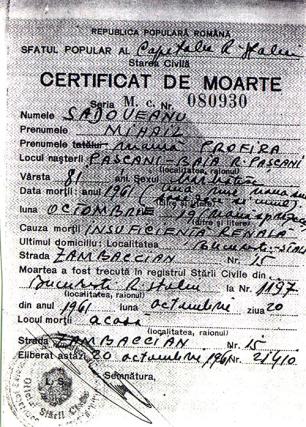 REPUBLICA POPULARĂ ROMÂNĂ
SFATUL POPULAR AL Capitalei R. Stalin
Starea Civilă
CERTIFICAT DE MOARTE
Seria M. c. Nr. 080930
Numele SADOVEANU
Prenumele MIHAIL
Prenumele tatălui mama PROFIRA
Locul nașterii PAȘCANI-BAIA R. PAȘCANI
(localitatea, raionul)
Vârsta 81 ani Sexul
Data morții: anul 1961 (una mie nouă sute
(cifre și litere)
luna OCTOMBRIE 19
(cifre și litere)
Cauza morții INSUFICIENȚA RENALĂ
Ultimul domiciliu: Localitatea București-
Strada ZAMBACCIAN Nr. 15
Moartea a fost trecută în registrul Stării Civile din
București R. Stalin la Nr. 1197
(localitatea, raionul)
din anul 1961 luna octombrie ziua 20
Locul morții acasă
(localitatea, raionul)
Strada ZAMBACCIAN Nr. 15
Eliberat astăzi 20 octombrie 1961 Nr. 21410
Semnătura,
L.S.
Stării Civile